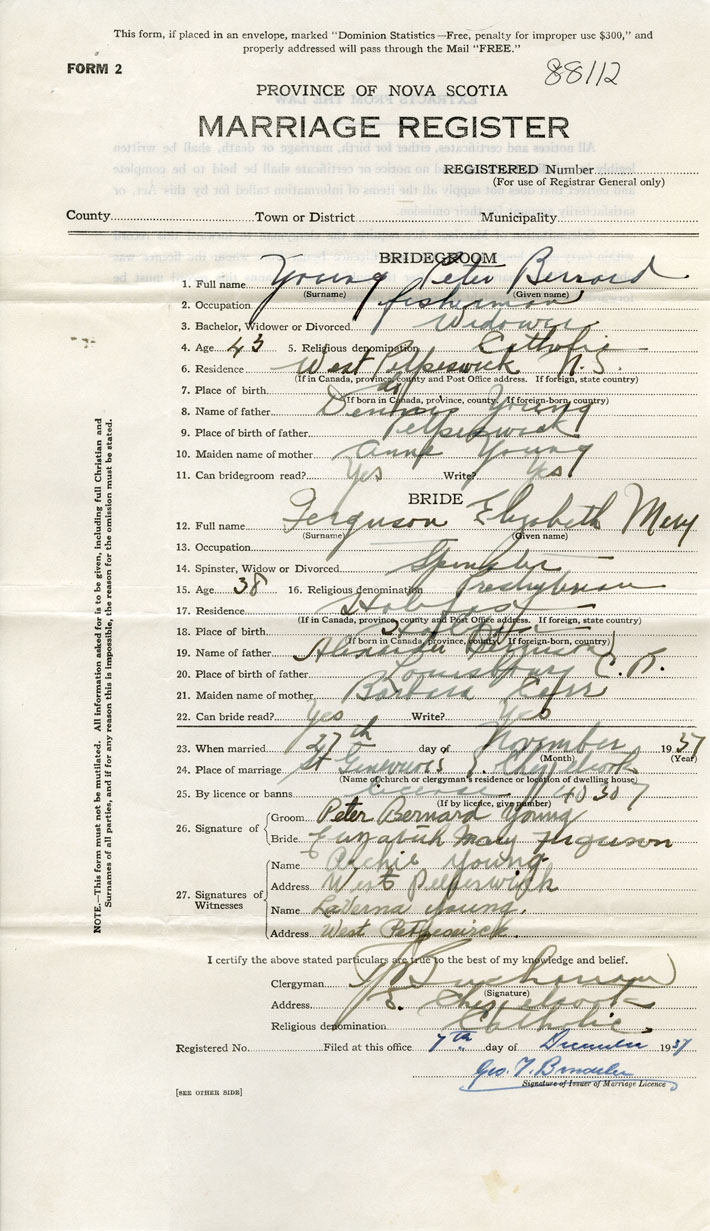 This form, if placed in an envelope, marked "Dominion Statistics—Free, penalty for improper use $300," and
properly addressed will pass through the Mail "FREE."
FORM 2
88112
PROVINCE OF NOVA SCOTIA
MARRIAGE REGISTER
REGISTERED Number
(For use of Registrar General only)
County Town or District Municipality
BRIDEGROOM
1. Full name Young Peter Bernard
(Surname) (Given name)
2. Occupation fisherman
3. Bachelor, Widower or Divorced Widower
4. Age 43 5. Religious denomination Catholic
6. Residence West Petpeswick N.S.
(If in Canada, province, county and Post Office address. If foreign, state country)
7. Place of birth do
(If born in Canada, province, county. If foreign-born, country)
8. Name of father Dennis Young
9. Place of birth of father Petpeswick
10. Maiden name of mother Anne Young
11. Can bridegroom read? Yes Write? Yes
BRIDE
12. Full name Ferguson Elizabeth Mary
(Surname) (Given name)
13. Occupation
14. Spinster, Widow or Divorced Spinster
15. Age 38 16. Religious denomination Presbyterian
17. Residence Halifax
(If in Canada, province, county and Post Office address. If foreign, state country)
18. Place of birth
(If born in Canada, province, county. If foreign-born, country)
19. Name of father Alexander Ferguson
20. Place of birth of father Louisburg C.B.
21. Maiden name of mother Barbara Kerr
22. Can bride read? Yes Write? Yes
23. When married 27th day of November 1937
(Month) (Year)
24. Place of marriage St Genevieves E. Chezzetcook
(Name of church or clergyman's residence or location of dwelling house)
25. By licence or banns License 40307
(If by licence, give number)
26. Signature of Groom Peter Bernard Young
Bride Elizabeth Mary Ferguson
27. Signatures of Witnesses
Name Archie Young
Address West Petpeswick
Name LaVerna Young.
Address West Petpeswick.
I certify the above stated particulars are true to the best of my knowledge and belief.
Clergyman Buchanan
(Signature)
Address E. Chezzetcook
Religious denomination Catholic.
Registered No. Filed at this office 7th day of December 1937
Geo. T.
Signature of Issuer of Marriage Licence
[SEE OTHER SIDE]
NOTE.—This form must not be mutilated. All information asked for is to be given, including full Christian and
Surnames of all parties, and if for any reason this is impossible, the reason for the omission must be stated.